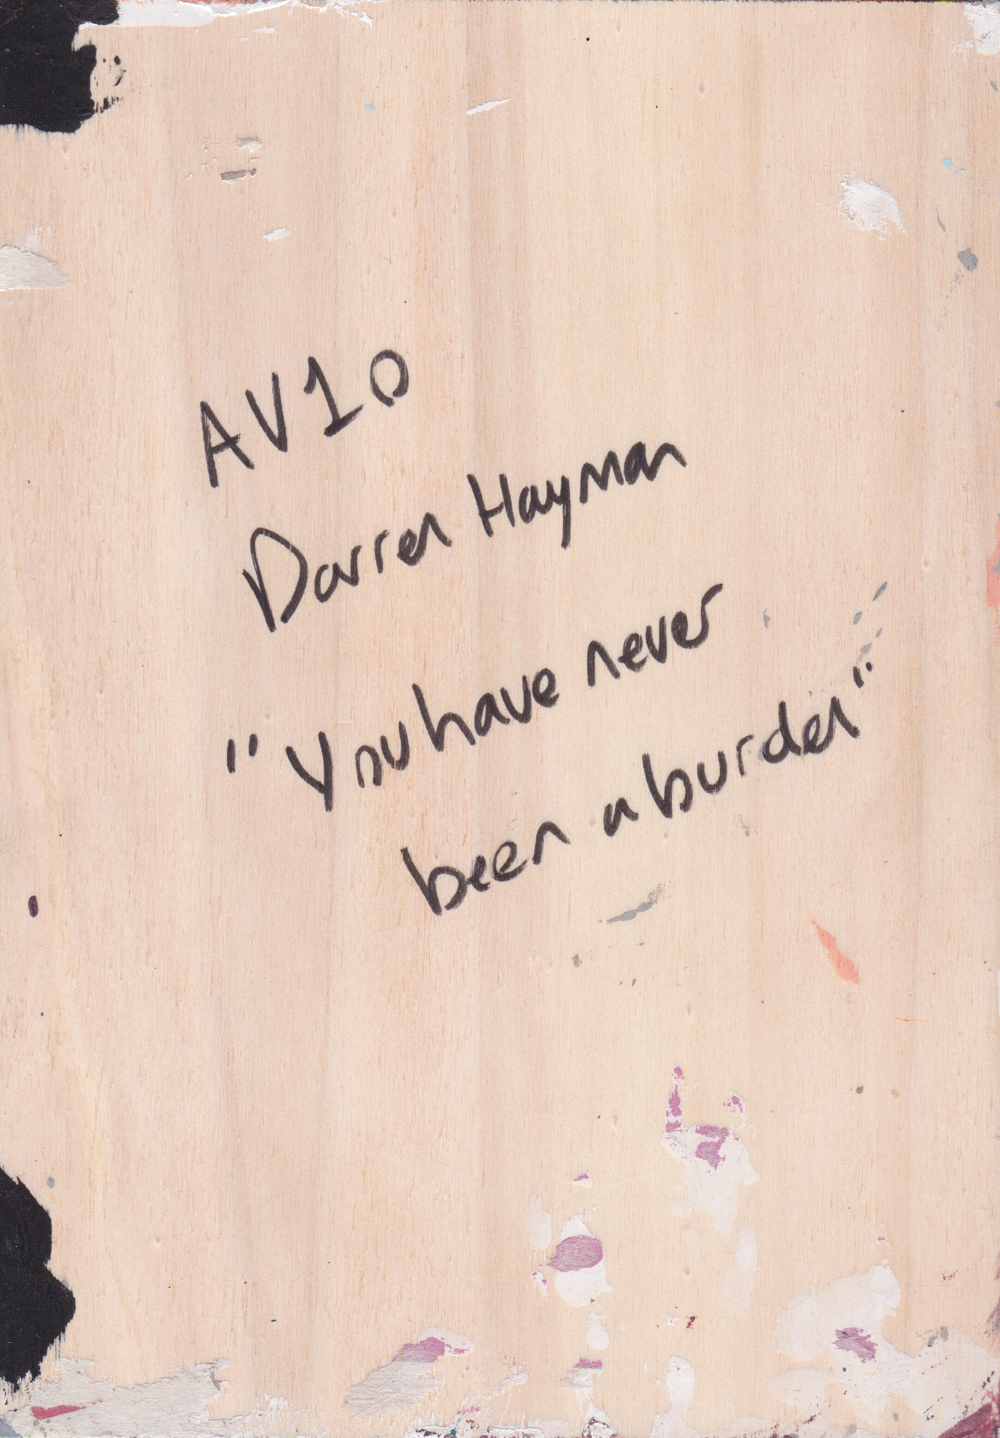 AV10
Darren Hayman
"You have never
been a burden"